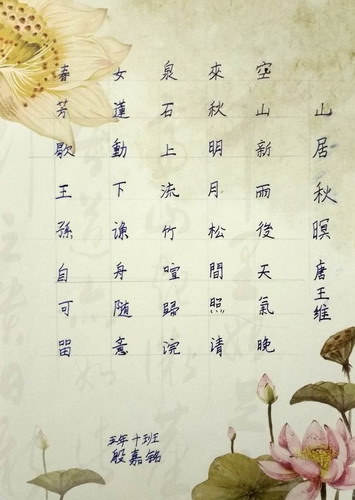 山居秋暝 唐王维
空山新雨後天氣晚
來秋明月松間照清
泉石上流竹喧歸浣
女蓮動下渔舟随意
春芳歇王孫自可留
五年十班
殷嘉铭